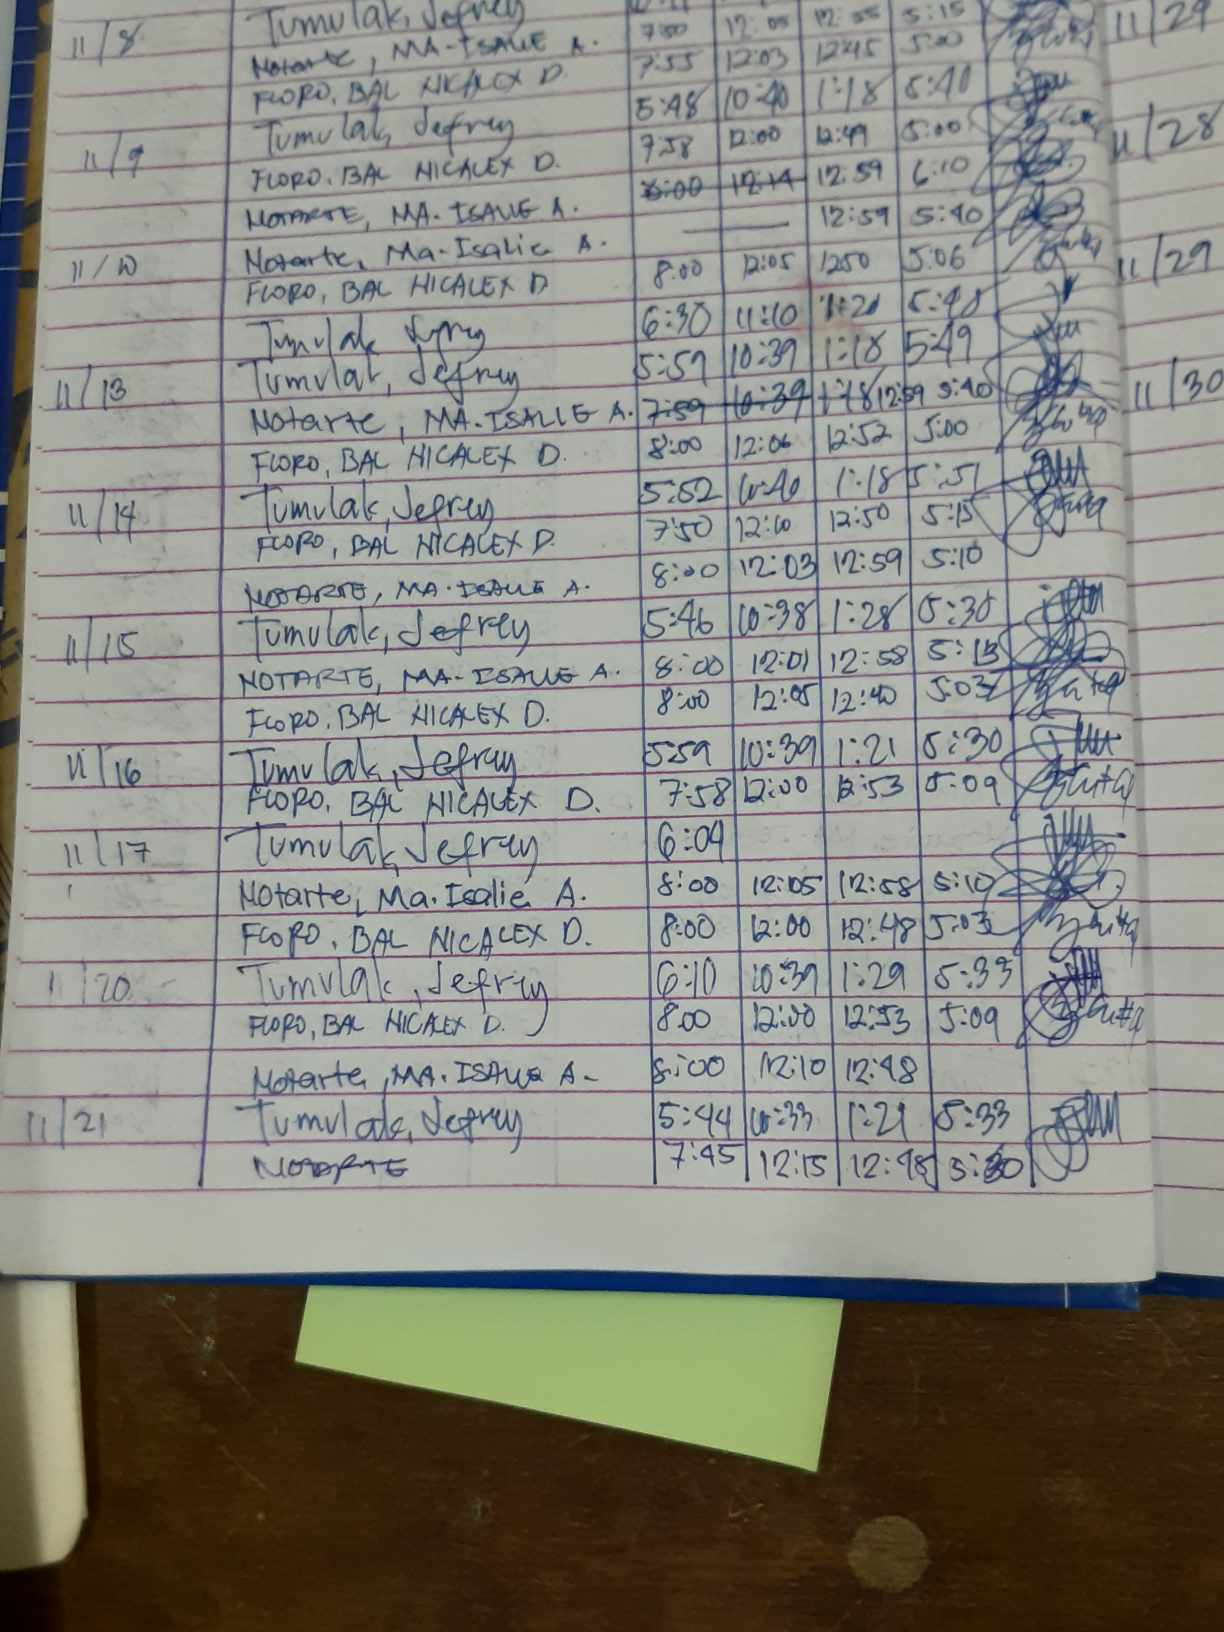 11/8 Tumulak, Jefrey 5:15
Notarte, MA-ISALIE A. 7:50 12:05 12:55 5:00
FLORO, BAL NICALEX D. 7:55 12:03 12:45
11/9 Tumulak, Jefrey 5:48 10:40 1:18 5:40
FLORO, BAL NICALEX D. 7:58 12:00 12:49 5:00
NOTARTE, MA. ISALIE A. 8:00 12:14 12:59 6:10
12:59 5:40
11/10 Notarte, Ma-Isalie A.
FLORO, BAL NICALEX D 8:00 12:05 1250 5:06
Tumulak Jefrey 6:30 11:10 1:21 5:48
11/13 Tumulak, Jefrey 5:59 10:39 1:18 5:49
Notarte, MA. ISALIE A. 7:59 10:39 1:18 12:59 5:40
FLORO, BAL NICALEX D. 8:00 12:06 12:52 5:00
11/14 Tumulak, Jefrey 5:52 10:40 1:18 5:51
FLORO, BAL NICALEX D. 7:50 12:10 12:50 5:15
NOTARTE, MA. ISALIE A. 8:00 12:03 12:59 5:10
11/15 Tumulak, Jefrey 5:46 10:38 1:28 5:35
NOTARTE, MA-ISALIE A. 8:00 12:01 12:58 5:13
FLORO, BAL NICALEX D. 8:00 12:05 12:40 5:03
11/16 Tumulak, Jefrey 559 10:39 1:21 5:30
FLORO, BAL NICALEX D. 7:58 12:00 12:53 5:09
11/17 Tumulak, Jefrey 6:04
Notarte, Ma. Isalie A. 8:00 12:05 12:58 5:10
FLORO, BAL NICALEX D. 8:00 12:00 12:48 5:03
1/20 Tumulak, Jefrey 6:10 10:39 1:29 5:33
FLORO, BAL NICALEX D. 8:00 12:00 12:53 5:09
Notarte, MA. ISALIE A- 8:00 12:10 12:48
11/21 Tumulak, Jefrey 5:44 10:33 1:21 5:33
NOTARTE 7:45 12:15 12:48 5:30
11/29
11/28
11/29
11/30